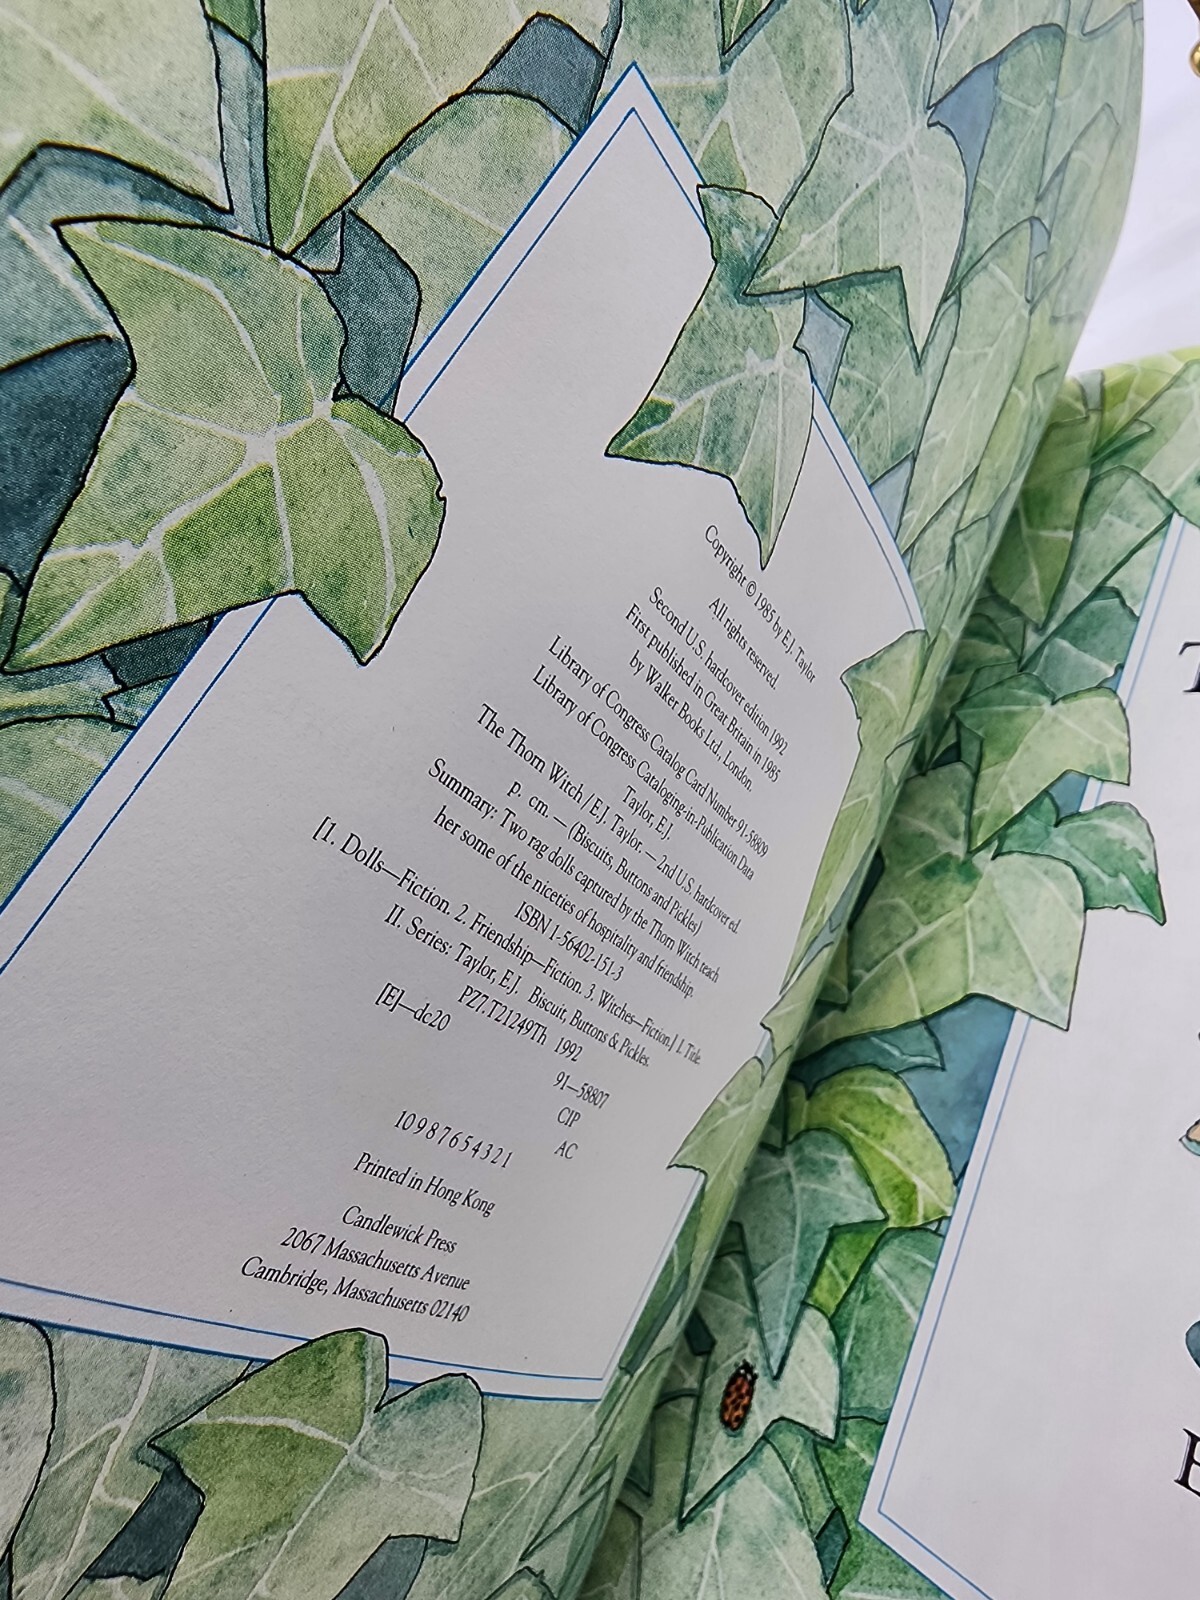 Copyright © 1985 by E.J. Taylor
All rights reserved.
Second U.S. hardcover edition 1992
First published in Great Britain in 1985
by Walker Books Ltd., London.
Library of Congress Catalog Card Number 91-58809
Library of Congress Cataloging-in-Publication Data
Taylor, E.J.
The Thorn Witch / E.J. Taylor. — 2nd U.S. hardcover ed.
p. cm. — (Biscuits, Buttons and Pickles)
Summary: Two rag dolls captured by the Thorn Witch teach
her some of the niceties of hospitality and friendship.
ISBN 1-56402-151-3
[1. Dolls—Fiction. 2. Friendship—Fiction. 3. Witches—Fiction.] I. Title.
II. Series: Taylor, E.J. Biscuit, Buttons & Pickles.
PZ7.T21249Th 1992
[E]—dc20
91—58807
CIP
AC
10 9 8 7 6 5 4 3 2 1
Printed in Hong Kong
Candlewick Press
2067 Massachusetts Avenue
Cambridge, Massachusetts 02140